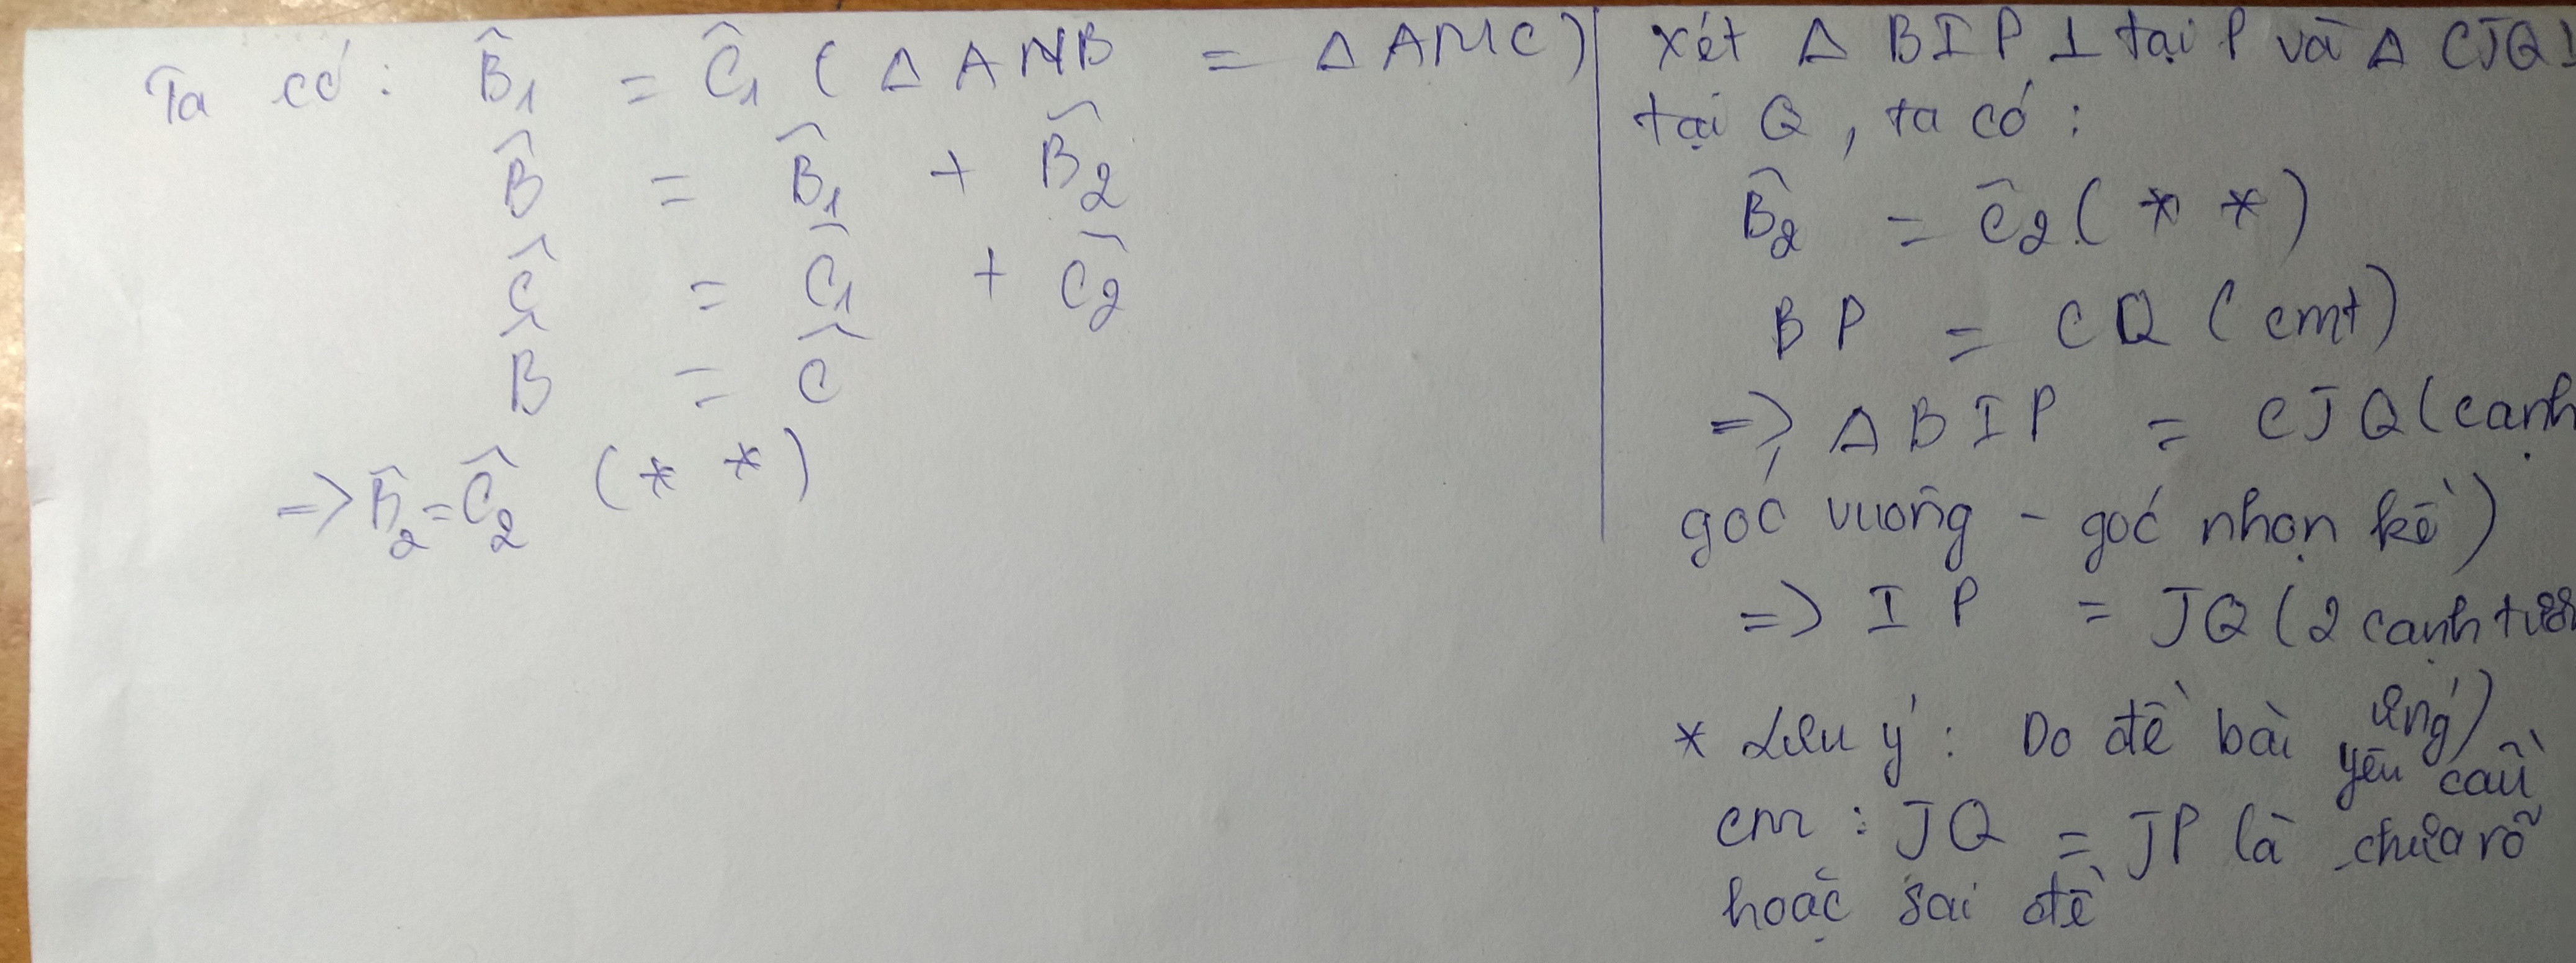 Ta có: B̂₁ = Ĉ₁ (Δ ANB = Δ AMC)
B̂ = B̂₁ + B̂₂
Ĉ = Ĉ₁ + Ĉ₂
B̂ = Ĉ
=> B̂₂ = Ĉ₂ (**)
Xét Δ BIP ⊥ tại P và Δ CJQ ⊥
tại Q, ta có:
B̂₂ = Ĉ₂ (**)
BP = CQ (cmt)
=> Δ BIP = CJQ (cạnh
góc vuông - góc nhọn kề)
=> IP = JQ (2 cạnh tươn
ứng)
* Lưu ý: Do đề bài yêu cầu
cm: JQ = JP là chưa rõ
hoặc sai đề